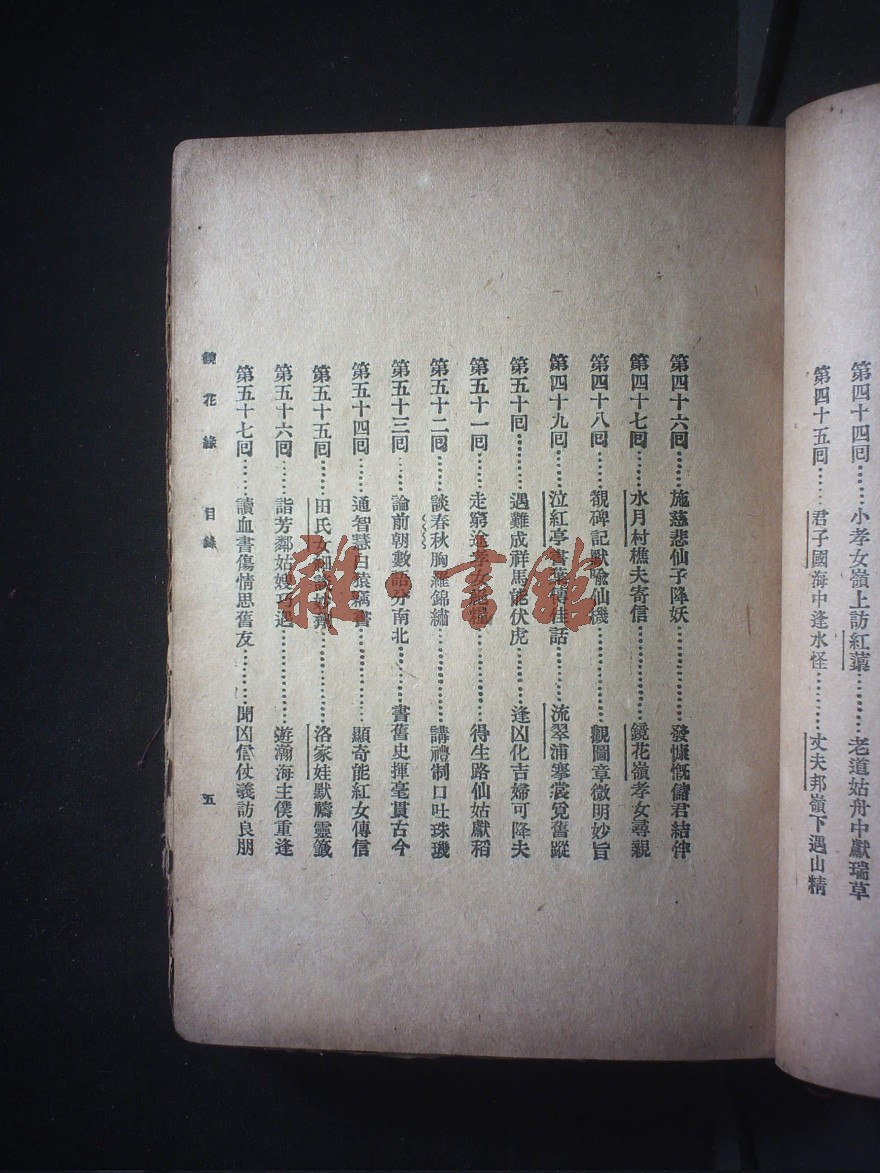 第四十四回……小孝女嶺上訪紅蕖………老道姑舟中獻瑞草
第四十五回……君子國海中逢水怪………丈夫邦嶺下遇山精
第四十六回……施慈悲仙子降妖…………發慷慨儲君結伴
第四十七回……水月村樵夫寄信…………鏡花嶺孝女尋親
第四十八回……覩碑記默喻仙機…………觀圖章微明妙旨
第四十九回……泣紅亭書葉傳佳話………流翠浦搴裳覓舊蹤
第五十回………遇難成祥馬能伏虎………逢凶化吉婦可降夫
第五十一回……走窮途孝女絕糧…………得生路仙姑獻稻
第五十二回……談春秋胸羅錦繡…………講禮制口吐珠璣
第五十三回……論前朝數語分南北………書舊史揮毫貫古今
第五十四回……通智慧白猿竊書…………顯奇能紅女傳信
第五十五回……田氏女細談妙劑…………洛家娃默禱靈籤
第五十六回……詣芳鄰姑嫂巧遇…………遊瀚海主僕重逢
第五十七回……讀血書傷情思舊友………聞凶信仗義訪良朋
鏡花緣 目錄
五
雜·書館